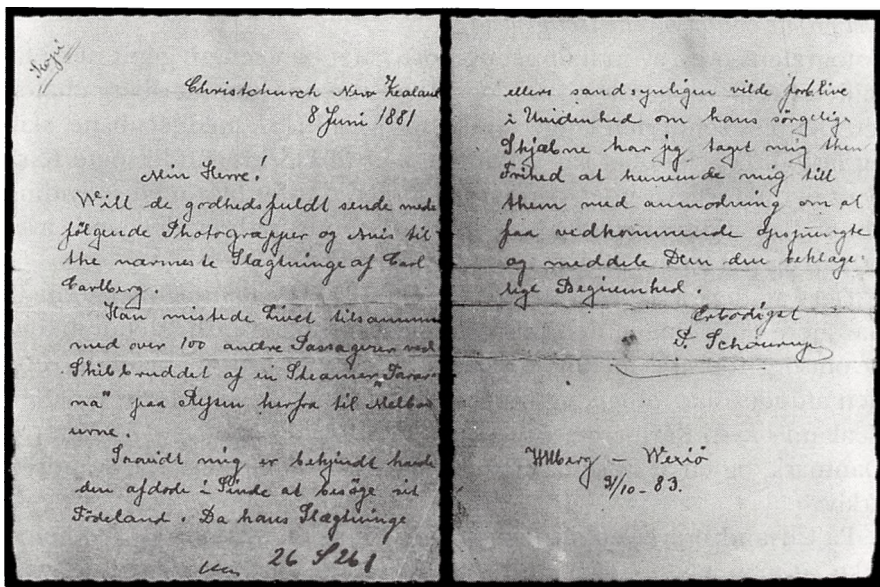 Kopi
Christchurch New Zealand
8 Juni 1881
Min Herre!
Will de godhedsfuldt sende med
følgende Photograpper og Avis til
the nærmeste Slægtninge af Carl
Carlberg.
Han mistede Livet tilsammen
med over 100 andre Passagerer ved
Skibbruddet af en Steamer "Tararu
na" paa Rejsen herfra til Melbo
urne.
Saavidt mig er bekjendt havde
den afdøde i Sinde at besøge sit
Födeland. Da hans Slægtninge
26 S 261
ellers sandsynligen vilde forblive
i Uvidenhed om hans sörgelige
Skjæbne har jeg taget mig then
Frihed at henvende mig till
them med anmodning om at
faa vedkommende opspurgte
og meddele Dem den beklage-
lige Begivenhed.
Erbödigst
Schourup
Wexiö
31/10 - 83.